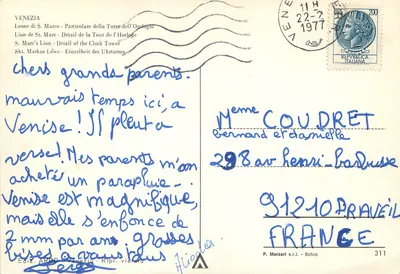 VENEZIA
Leone di S. Marco - Particolare della Torre dell'Orologio
Lion de St. Marc - Détail de la Tour de l'Horloge
S. Marc's Lion - Detail of the Clock Tower
Skt. Markus Löwe - Einzelheit des Uhrturms
chers grands parents.
mauvais temps ici, a
Venise ! Il pleut a
verse ! Mes parents m'on
acheté un parapluie.
Venise est magnifique,
mais elle s'enfonce de
2 mm par ans. grosses
bises a vous tous
VENE
11 H
22-2
1977
200
ITALIANA
Meme COUDRET
bernard et danielle
298 av henri-barbusse
91210 DRAVEIL
FRANCE
P. Marzari s.r.l. - Schio
311